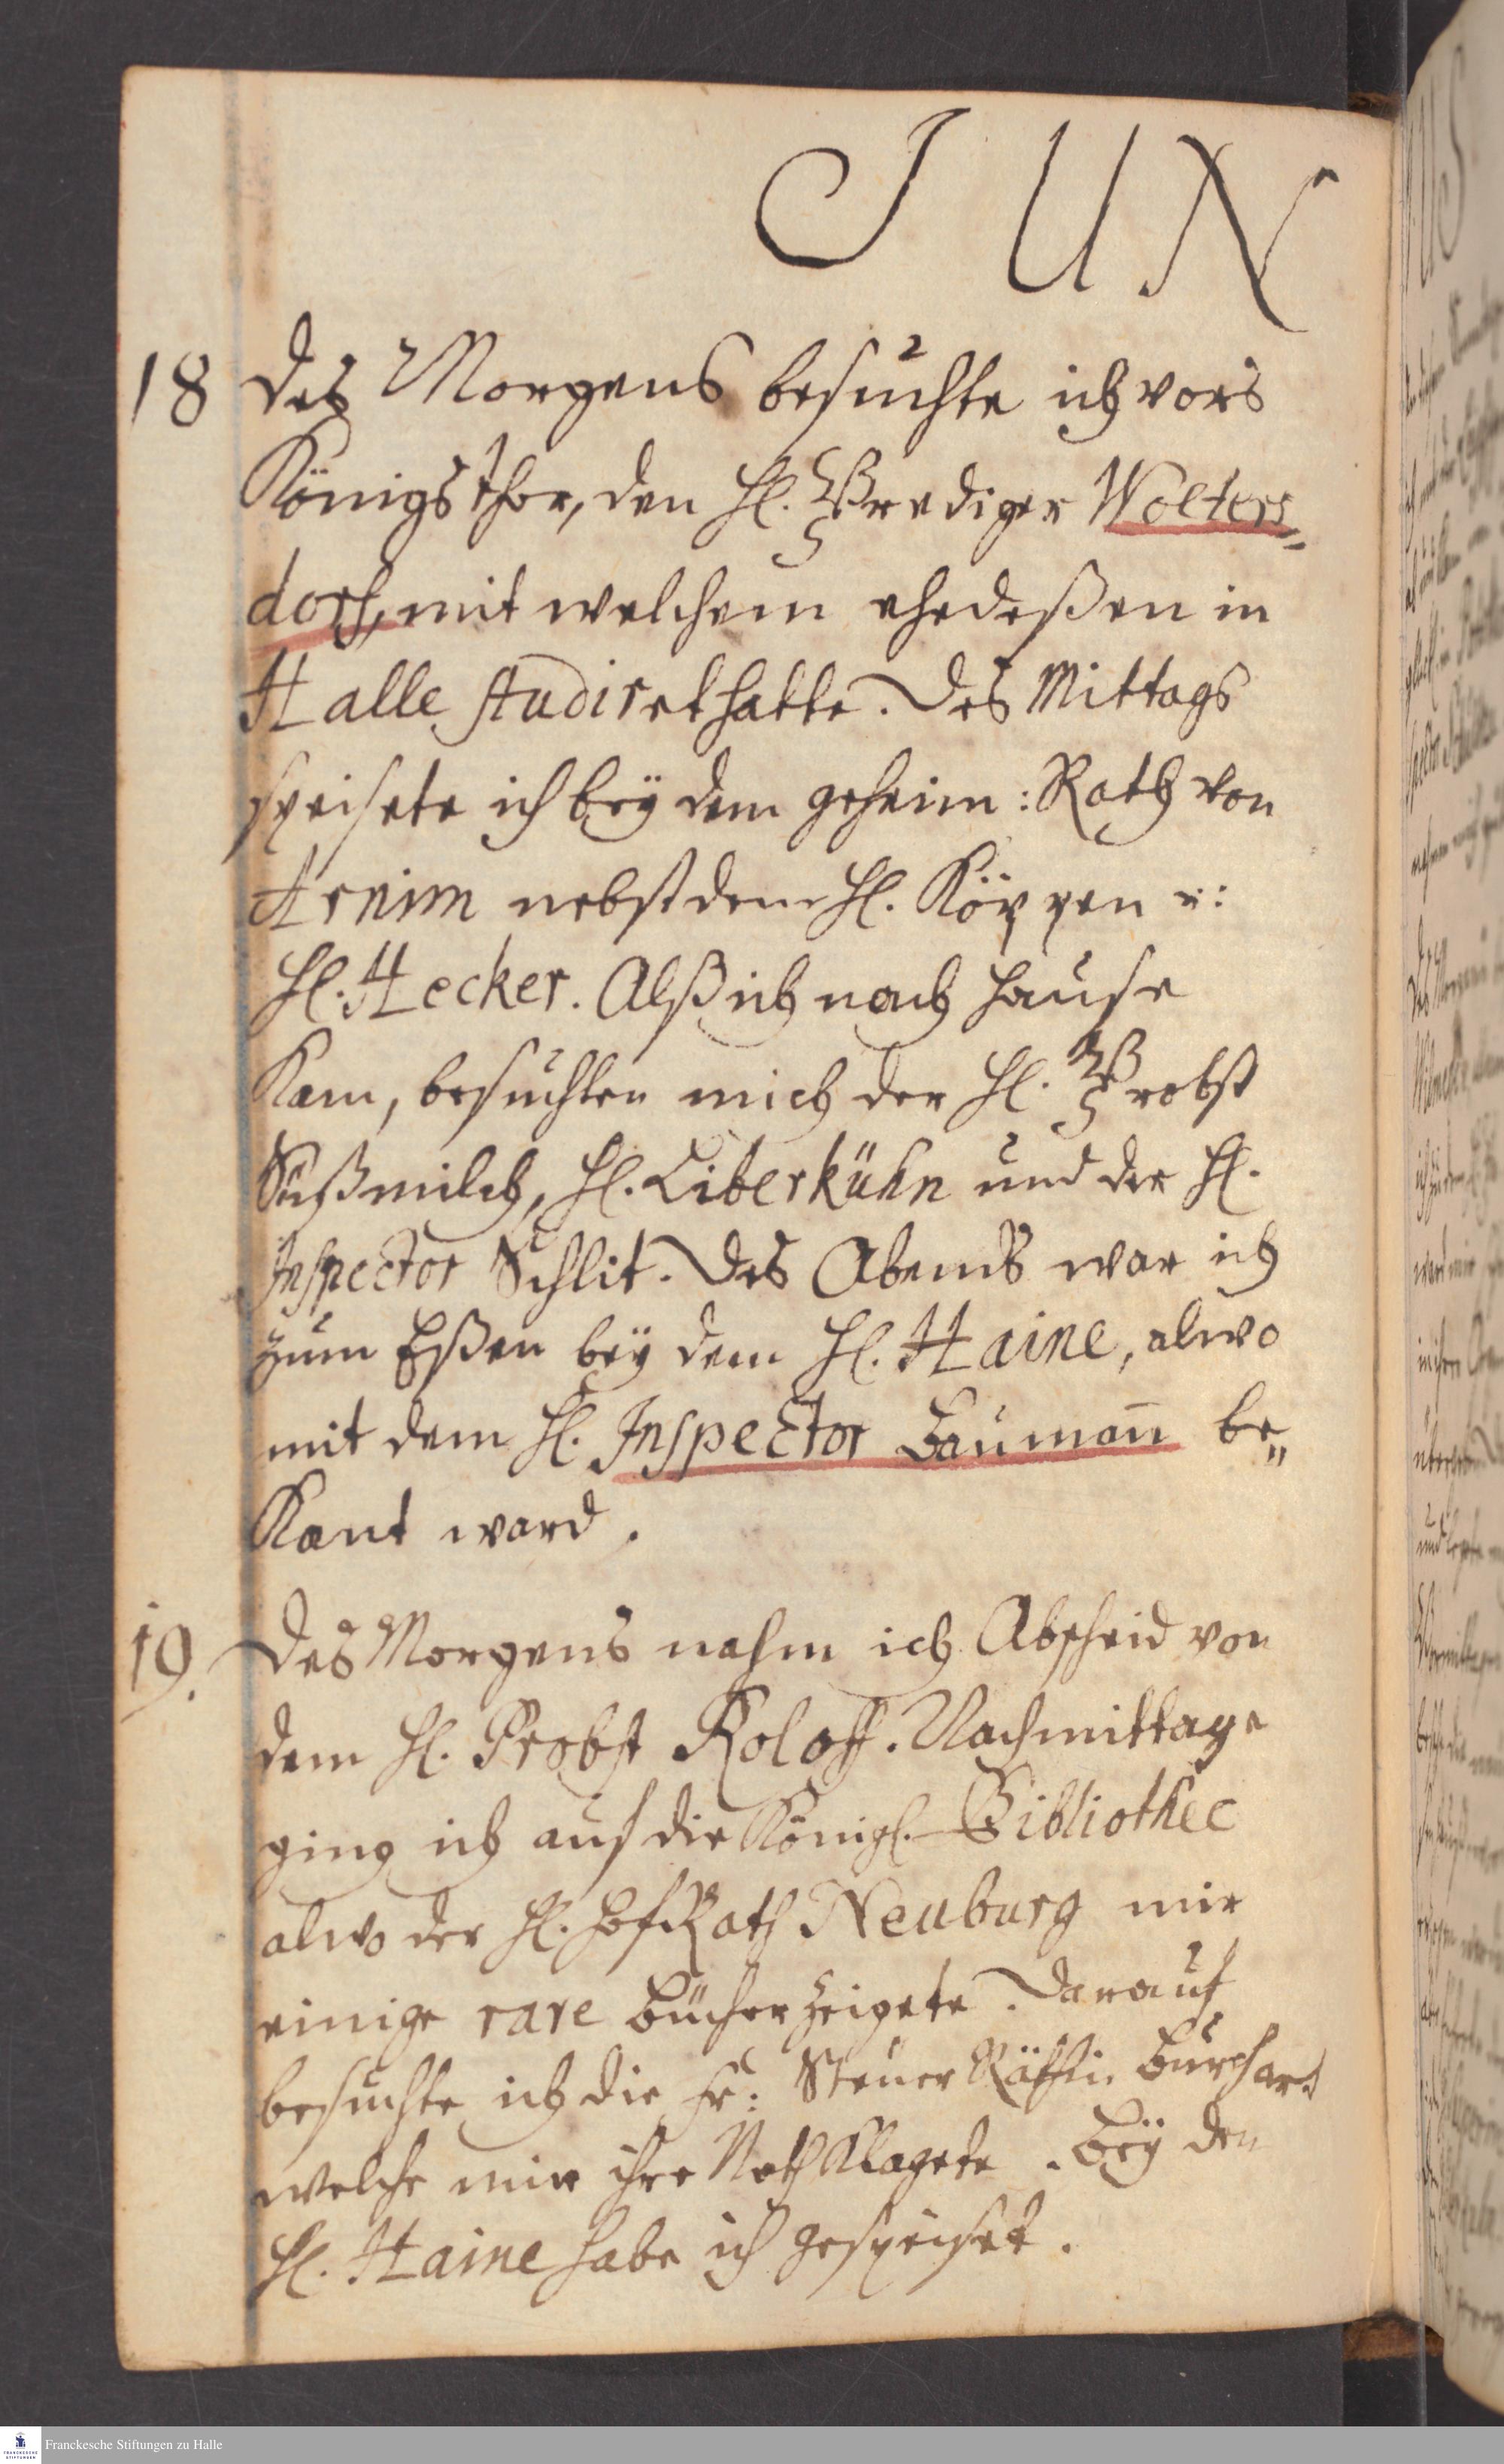 JUN
18 Des Morgens besuchte ich vors
Königsthor, den H. Prediger Wolters„
dorf, mit welchem ehedeßen in
Halle studiret hatte. Des Mittags
speisete ich beÿ dem geheim: Rath von
Arnim nebst dem H. Köppen u:
H. Hecker. Alß ich nach Hause
kam, besuchten mich der H. Probst
Süßmilch, H. Liberkühn und der H.
Inspector Schlit. Des Abends war ich
zum Eßen beÿ dem H. Haine, alwo
mit dem H. Inspector Baumañ be„
kant ward.
19. Des Morgens nahm ich Abscheid von
dem H. Probst Roloff. Nachmittage
ging ich auf die Königl. Bibliothec
alwo der H. HofRath Neuburg mir
einige rare Bücher zeigete. Darauf
besuchte ich die Fr: SteuerRäthin Burchard
welche mir ihre Noth klagete. Beÿ den
H. Haine habe ich gespeiset.
Franckesche Stiftungen zu Halle